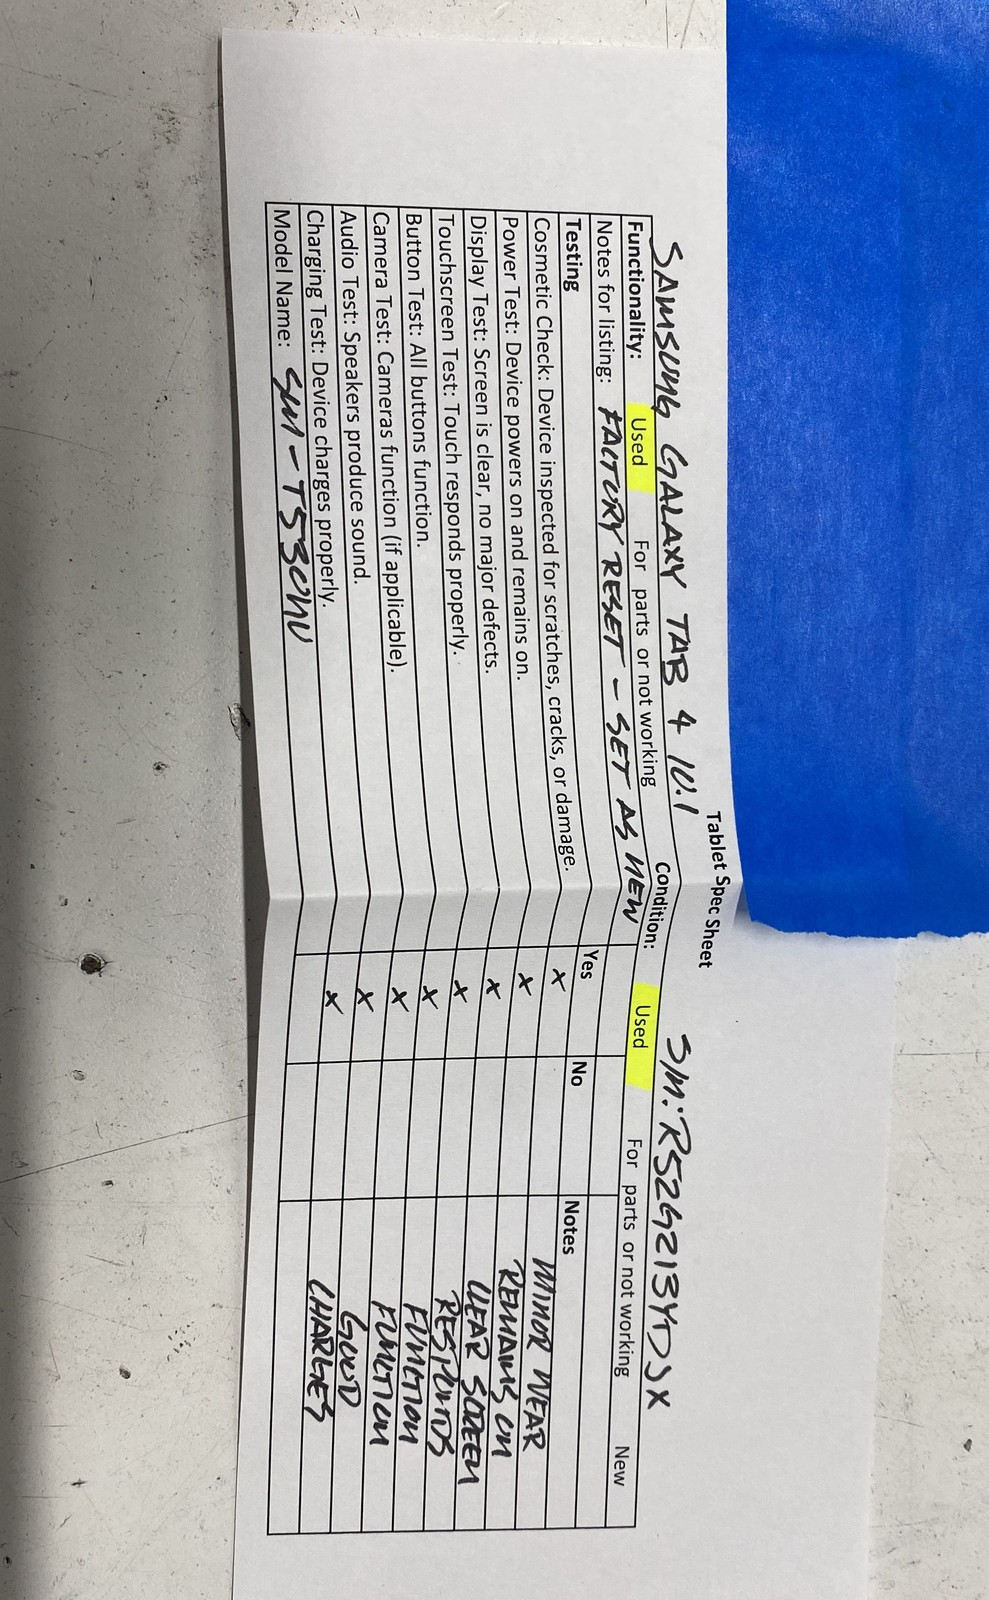 Tablet Spec Sheet
SAMSUNG GALAXY TAB 4 10.1 S/N: R52G213YDJX
Functionality: Used For parts or not working Condition: Used For parts or not working New
Notes for listing: FACTORY RESET - SET AS NEW
Testing Yes No Notes
Cosmetic Check: Device inspected for scratches, cracks, or damage. X MINOR WEAR
Power Test: Device powers on and remains on. X REMAINS ON
Display Test: Screen is clear, no major defects. X CLEAR SCREEN
Touchscreen Test: Touch responds properly. X RESPONDS
Button Test: All buttons function. X FUNCTION
Camera Test: Cameras function (if applicable). X FUNCTION
Audio Test: Speakers produce sound. X GOOD
Charging Test: Device charges properly. X CHARGES
Model Name: SM-T530NU